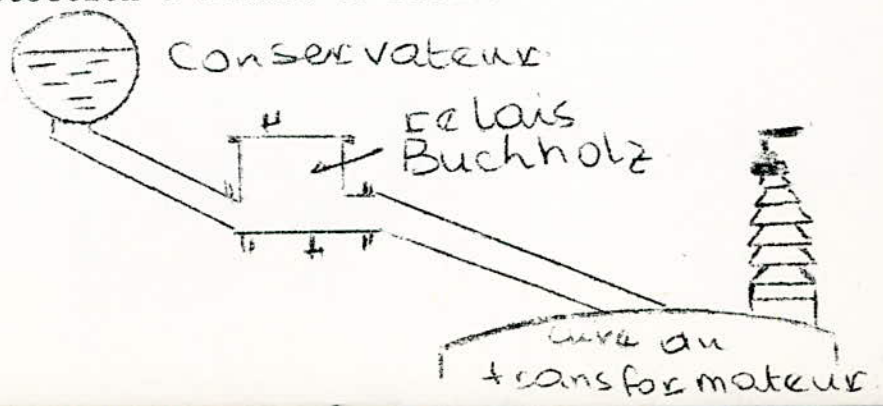 Conservateur
relais
Buchholz
cuve du
transformateur